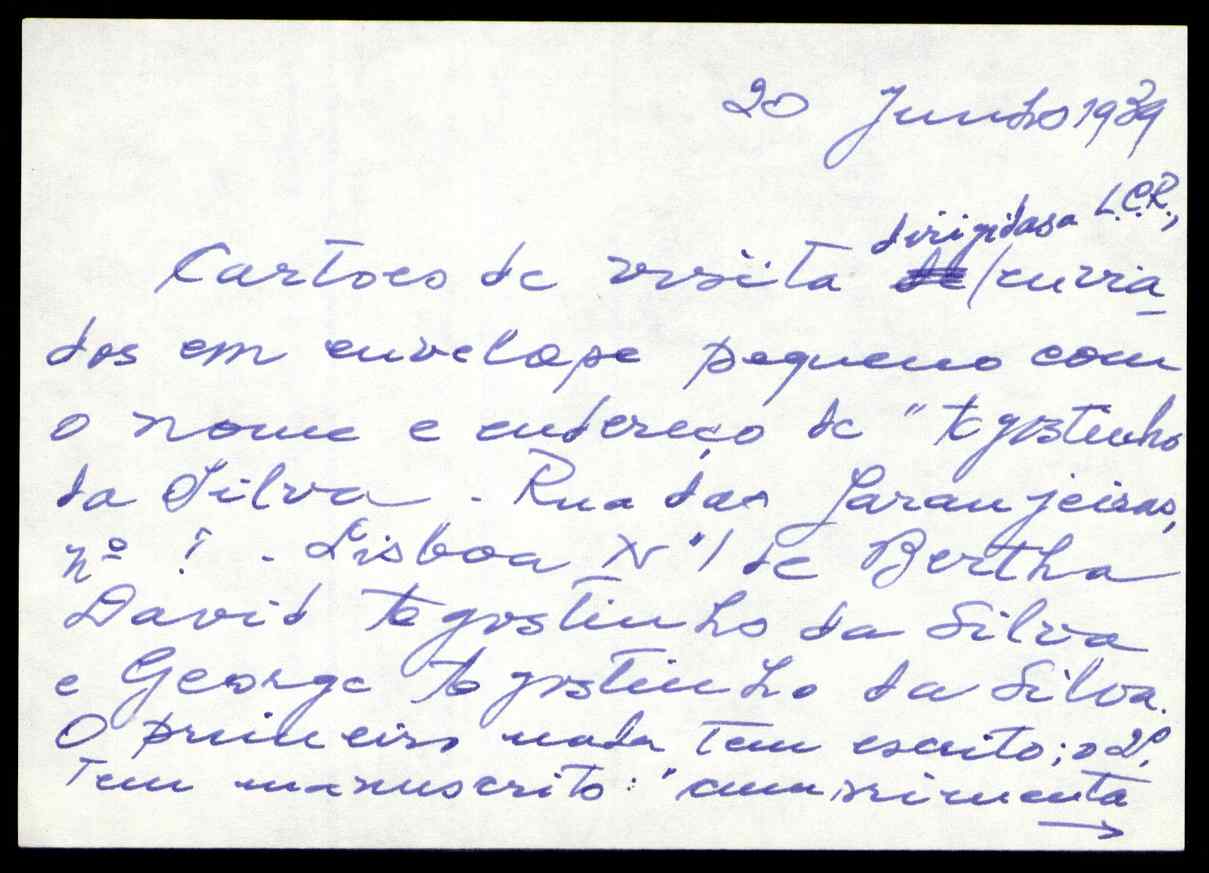 20 Junho 1939
dirigidas a L.C.R.,
Cartões de visita / envia-
dos em envelope pequeno com
o nome e endereço de "Agostinho
da Silva - Rua das Laranjeiras,
nº ? - Lisboa N" / de Bertha
David Agostinho da Silva
e George Agostinho da Silva.
O primeiro nada tem escrito; o 2º,
tem manuscrito: "cumprimenta
→